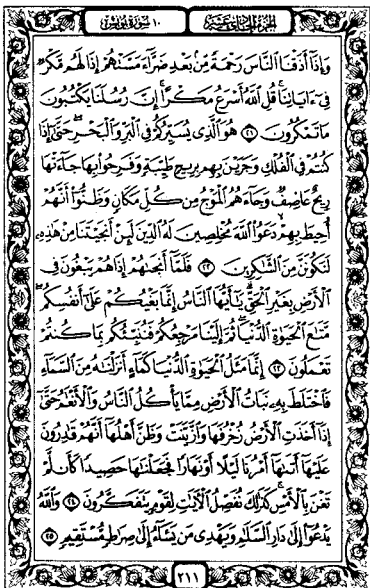 ١٠ سورة يونس
الجزء الحادي عشر
وَإِذَا أَذَقْنَا النَّاسَ رَحْمَةً مِّنْ بَعْدِ ضَرَّاءَ مَسَّتْهُمْ إِذَا لَهُم مَّكْرٌ
فِي ءَايَاتِنَا قُلِ اللَّهُ أَسْرَعُ مَكْرًا إِنَّ رُسُلَنَا يَكْتُبُونَ
مَا تَمْكُرُونَ ٢١ هُوَ الَّذِي يُسَيِّرُكُمْ فِي الْبَرِّ وَالْبَحْرِ حَتَّى إِذَا
كُنتُمْ فِي الْفُلْكِ وَجَرَيْنَ بِهِم بِرِيحٍ طَيِّبَةٍ وَفَرِحُوا بِهَا جَاءَتْهَا
رِيحٌ عَاصِفٌ وَجَاءَهُمُ الْمَوْجُ مِن كُلِّ مَكَانٍ وَظَنُّوا أَنَّهُمْ
أُحِيطَ بِهِمْ دَعَوُا اللَّهَ مُخْلِصِينَ لَهُ الدِّينَ لَئِنْ أَنجَيْتَنَا مِنْ هَذِهِ
لَنَكُونَنَّ مِنَ الشَّاكِرِينَ ٢٢ فَلَمَّا أَنجَاهُمْ إِذَا هُمْ يَبْغُونَ فِي
الْأَرْضِ بِغَيْرِ الْحَقِّ يَا أَيُّهَا النَّاسُ إِنَّمَا بَغْيُكُمْ عَلَى أَنفُسِكُم
مَّتَاعَ الْحَيَوٰةِ الدُّنْيَا ثُمَّ إِلَيْنَا مَرْجِعُكُمْ فَنُنَبِّئُكُم بِمَا كُنتُمْ
تَعْمَلُونَ ٢٣ إِنَّمَا مَثَلُ الْحَيَوٰةِ الدُّنْيَا كَمَاءٍ أَنزَلْنَاهُ مِنَ السَّمَاءِ
فَاخْتَلَطَ بِهِ نَبَاتُ الْأَرْضِ مِمَّا يَأْكُلُ النَّاسُ وَالْأَنْعَامُ حَتَّى
إِذَا أَخَذَتِ الْأَرْضُ زُخْرُفَهَا وَازَّيَّنَتْ وَظَنَّ أَهْلُهَا أَنَّهُمْ قَادِرُونَ
عَلَيْهَا أَتَاهَا أَمْرُنَا لَيْلًا أَوْ نَهَارًا فَجَعَلْنَاهَا حَصِيدًا كَأَن لَّمْ
تَغْنَ بِالْأَمْسِ كَذَلِكَ نُفَصِّلُ الْآيَاتِ لِقَوْمٍ يَتَفَكَّرُونَ ٢٤ وَاللَّهُ
يَدْعُوا إِلَى دَارِ السَّلَامِ وَيَهْدِي مَن يَشَاءُ إِلَى صِرَاطٍ مُّسْتَقِيمٍ ٢٥
٢١١